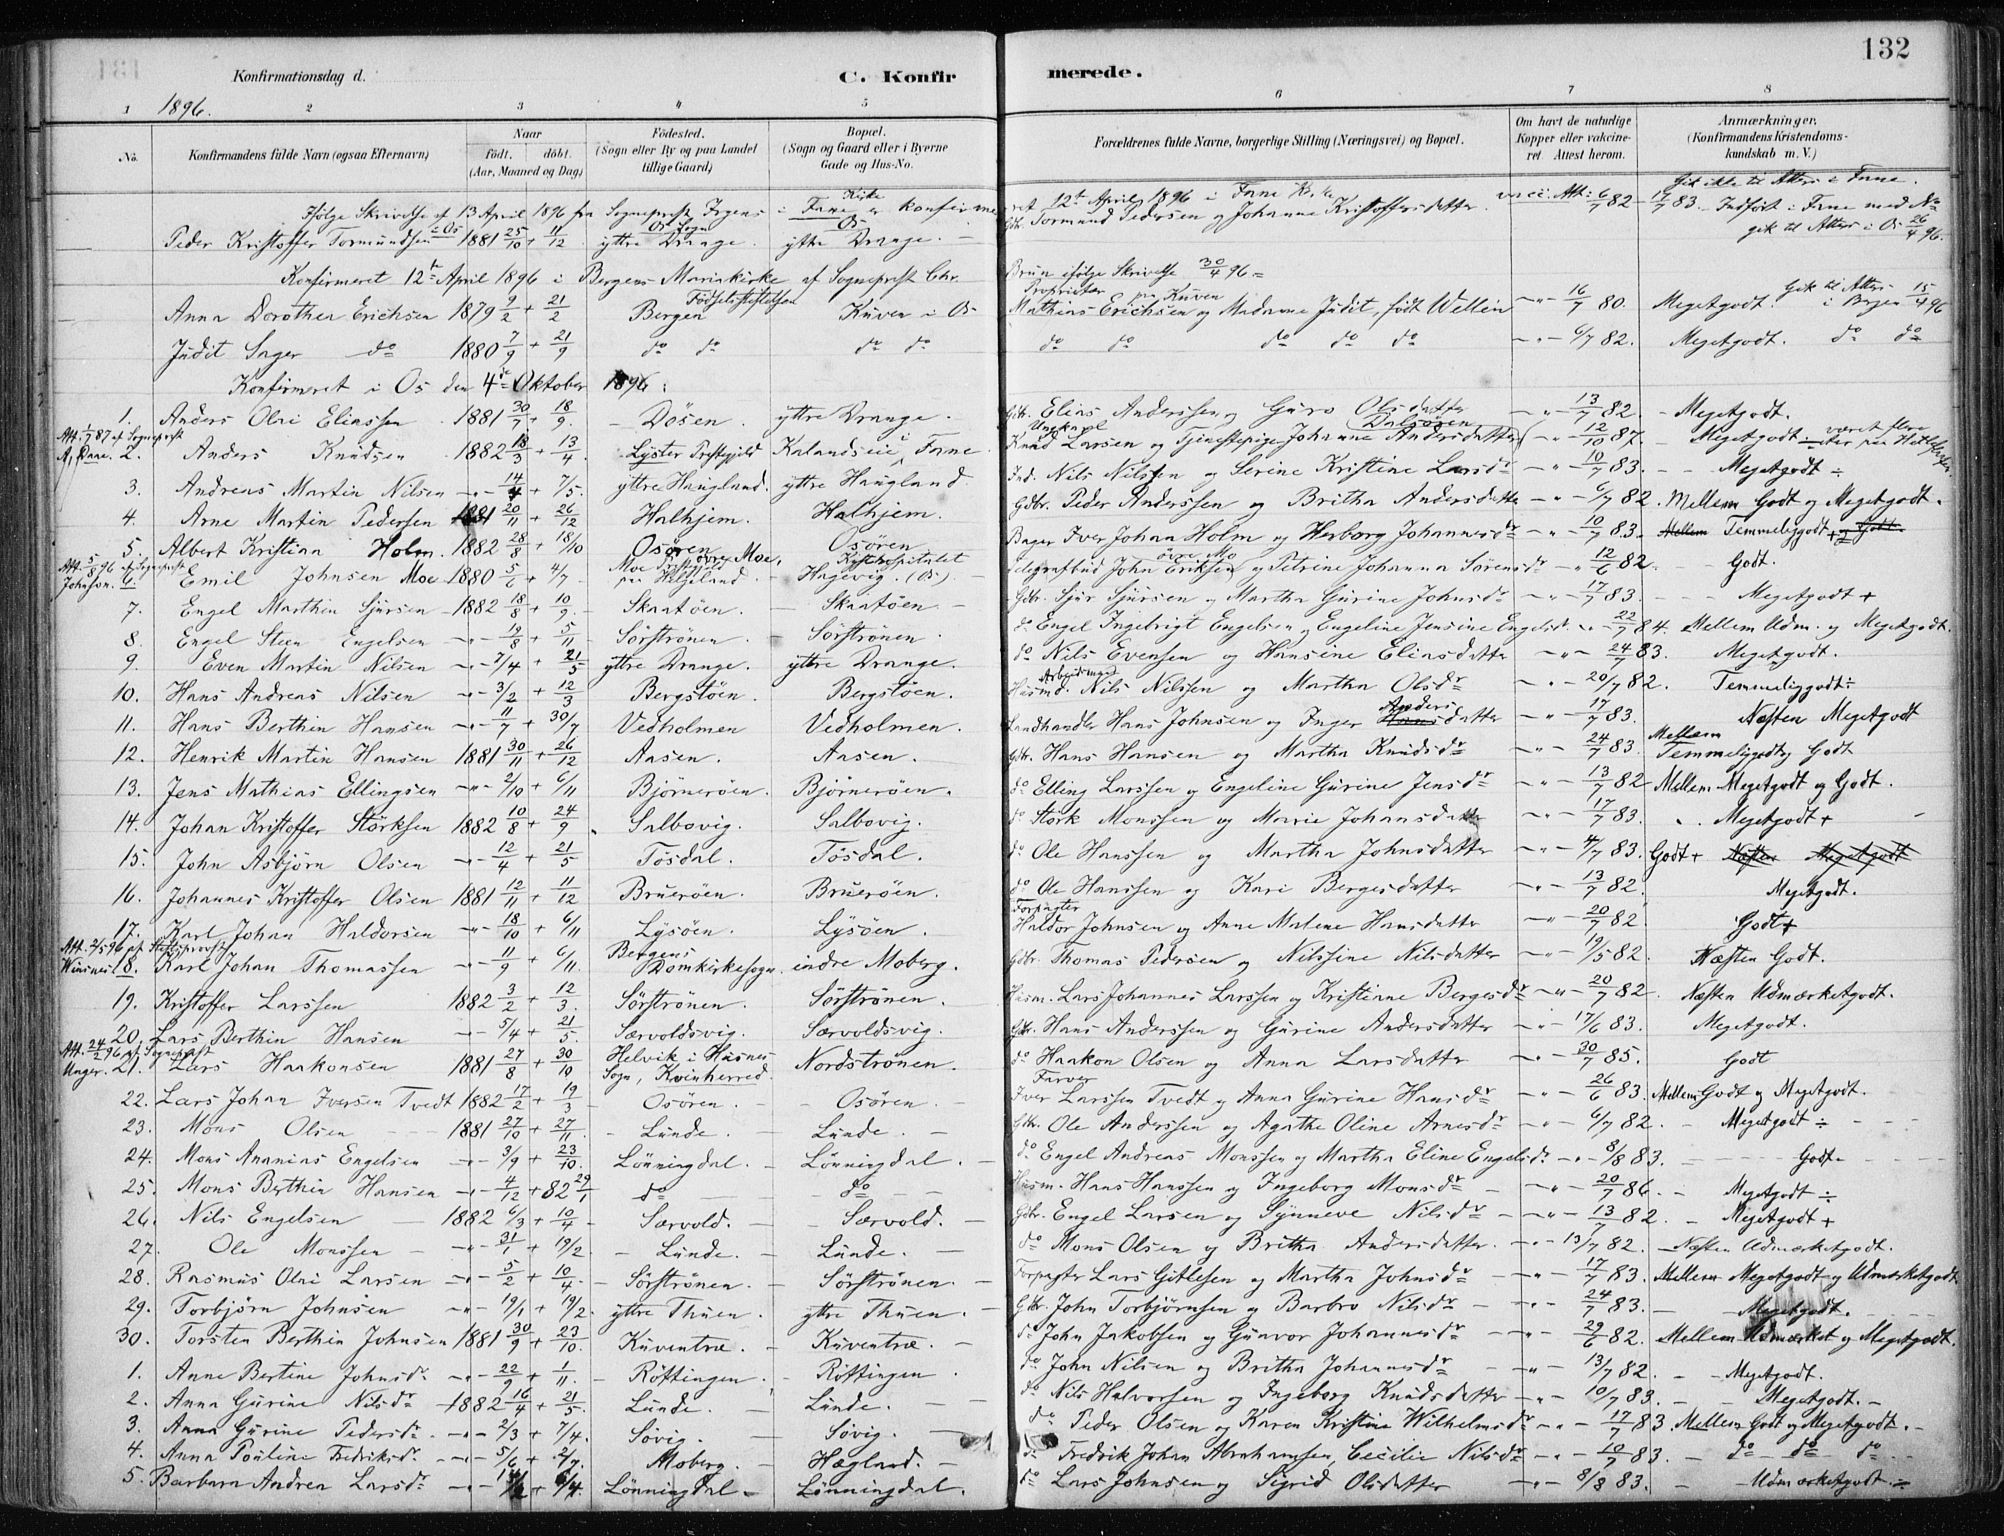 132
Konfirmationsdag d. C. Konfirmerede.
1896.
1 2 3 4 5 6 7 8
No. Konfirmandens fulde Navn (ogsaa Efternavn) Naar født. døbt. (Aar, Maaned og Dag) Fødested. (Sogn eller By og paa Landet tillige Gaard) Bopæl. (Sogn og Gaard eller i Byerne Gade og Hus-No. Forældrenes fulde Navne, borgerlige Stilling (Næringsvei) og Bopæl. Om havt de naturlige Kopper eller vakcineret Attest herom. Anmærkninger. (Konfirmandens Kristendomskundskab m. V.)
Ifølge Skrivelse af 13 April 1896 fra Sogneprest Irgens i Fane Kirke er konfirmeret 12te April 1896 i Fane K.
Peder Kristoffer Tormundsen 1881 25/10 + 11/12 yttre Drange. Os Sogn yttre Drange. Os Gbr. Tormund Pedersen og Johanne Kristoffersdatter vacc. Att. 6/7 82 - 17/7 83. Indført i Fane med No gik til Alters i Os 26/4 96.
Konfirmeret 12te April 1896 i Bergens Mariakirke af Sogneprest Chr. Brun ifølge Skrivelse 30/4 96.
Anna Dorothea Erichsen 1879 9/2 + 21/2 Bergen Fødselsstiftelsen Kuven i Os Proprietær paa Kuven Mathias Erichsen og Madame Judit, født Wellein -"- 16/7 80. Megetgodt. Gik til Alters i Bergen 15/4 96
Judit Inger do 1880 7/9 + 21/9 do do do do do do do do do -"- 6/7 82. Megetgodt. do do
Konfirmeret i Os den 4de Oktober 1896:
1. Anders Olai Eliassen 1881 30/7 + 18/9 Døsen. yttre Drange. Gbr. Elias Anderssen og Guro Olsdatter -"- 13/7 82. Megetgodt.
Att. 1/7 87 af Sogneprest A. Dane. 2. Anders Knudsen 1882 18/3 + 13/4 Lyster Prestegjeld Kalandseie i Fane. Ungkarl Knud Larsen og Tjenestepige Johanne Andersdatter Dalsøren -"- 12/10 87. Megetgodt ÷
3. Andreas Martin Nilsen -"- 14/4 + 7/5. yttre Haugland. yttre Haugland. Ind. Nils Nilssen og Serine Kristine Larsdr -"- 10/7 83. Megetgodt ÷
4. Arne Martin Pedersen 1881 20/11 + 26/12 Halhjem. Halhjem. Gdbr. Peder Anderssen og Britha Andersdatter -"- 6/7 82. Mellem Godt og Megetgodt.
5. Albert Kristian Holm. 1882 28/8 + 18/10 Osøren Osøren Bager Iver Johan Holm og Herborg Johannesdr -"- 10/7 83. Temmeliggodt
Att. 5/8 96 af Sogneprest Johnson. 6. Emil Johnsen Moe 1880 5/6 + 4/7 Moe øvre Moe, Helgeland. Kysthospitalet Hagevig. (Os) Telegrafbud John Eriksen øvre Mo og Petrine Johanna Sørensdr -"- 12/6 82. Godt.
7. Engel Marthin Sjursen 1882 18/8 + 10/9. Skaatøen. Skaatøen. Gbr. Sjur Sjursen og Martha Gurine Johnsdr -"- 17/7 83. Megetgodt +
8. Engel Steen Engelsen -"- 19/8 + 5/11 Sørstrønen. Sørstrønen. do Engel Ingebrigt Engelsen og Engeline Jensine Engelsd. -"- 22/7 84. Mellem Udm. og Megetgodt.
9. Even Martin Nilsen -"- 7/4 + 21/5 yttre Drange. yttre Drange. do Nils Evensen og Hansine Eliasdatter -"- 24/7 83. Megetgodt.
10. Hans Andreas Nilsen -"- 3/2 + 12/3 Bergstøen. Bergstøen. Husmd. Arbeidsmand Nils Nilssen og Martha Olsdr -"- 20/7 82. Temmeliggodt ÷
11. Hans Berthin Hansen -"- 11/7 + 30/7 Vedholmen Vedholmen. Landhandler Hans Johnsen og Inger Andersdatter -"- 17/7 83. Næsten Megetgodt
12. Henrik Martin Hansen 1881 30/11 + 26/12 Aasen. Aasen. Gbr. Hans Hansen og Martha Knudsdr -"- 24/7 83. Mellem Temmeligodt og Godt
13. Jens Mathias Ellingsen -"- 2/10 + 6/11 Bjørnerøen. Bjørnerøen. do Elling Larssen og Engeline Gurine Jensdr -"- 13/7 82 Mellem Megetgodt og Godt.
14. Johan Kristoffer Størksen 1882 10/8 + 24/9 Salbovig. Salbovig. do Størk Monssen og Marie Johansdatter -"- 17/7 83. Megetgodt +
15. John Asbjørn Olsen -"- 12/4 + 21/5 Tøsdal. Tøsdal. do Ole Hanssen og Martha Johnsdatter -"- 4/7 83. Godt + Næsten Megetgodt
16. Johannes Kristoffer Olsen 1881 12/11 + 11/12 Bruerøen. Bruerøen. do Ole Hanssen og Kari Bergesdatter -"- 13/7 82. Megetgodt.
17. Karl Johan Haldorsen -"- 18/10 + 6/11 Lysøen. Lysøen. Forpagter Haldor Johnsen og Anne Malene Hansdatter -"- 20/7 82 Godt +
Att. 2/5 96 af Stiftsprovst Winsnes 18. Karl Johan Thomassen -"- 11/9 + 6/11. Bergens Domkirkesogn. indre Moberg. Gdbr. Thomas Pedersen og Nilssine Nilsdatter -"- 19/5 82. Næsten Godt.
19. Kristoffer Larssen 1882 3/2 + 12/3. Sørstrønen. Sørstrønen. Husm. Lars Johannes Larssen og Kristiane Bergesdr -"- 20/7 82. Næsten Udmærketgodt.
20. Lars Berthin Hansen -"- 5/4 + 21/5. Særvoldsvig. Særvoldsvig. Gbr. Hans Anderssen og Gurine Andersdatter -"- 17/6 83. Megetgodt.
Att. 24/2 96 af Sogneprest Unger. 21. Lars Haakonsen 1881 27/8 + 30/10 Helvik i Husnes Sogn, Kvinherred. Nordstrønen. do Haakon Olsen og Anna Larsdatter -"- 30/7 85. Godt
22. Lars Johan Iversen Tvedt 1882 17/2 + 19/3 Osøren. Osøren. Farver Iver Larssen Tvedt og Anna Gurine Hansdr -"- 26/6 83. Mellem Godt og Megetgodt.
23. Mons Olsen 1881 27/10 + 27/11. Lunde. Lunde. Gbr. Ole Anderssen og Agathe Oline Arnesdr -"- 6/7 82. Megetgodt ÷
24. Mons Ananias Engelsen -"- 3/9 + 23/10. Lønningdal. Lønningdal. do Engel Andreas Monssen og Martha Eline Engelsdr. -"- 8/8 83. Godt.
25. Mons Berthin Hansen -"- 4/12 + 82 29/1 do do Husm. Hans Hanssen og Ingeborg Monsdr -"- 20/7 86. Megetgodt ÷
26. Nils Engelsen 1882 6/3 + 10/4 Særvold. Særvold. Gdbr. Engel Larsen og Synneve Nilsdr -"- 13/7 82. Megetgodt +
27. Ole Monssen -"- 31/1 + 19/2 Lunde. Lunde. do Mons Olsen og Britha Andersdatter. -"- 13/7 82. Næsten Udmærketgodt.
28. Rasmus Olai Larsen -"- 5/2 + 10/4. Sørstrønen. Sørstrønen. Forpagter Lars Gitlesen og Martha Johnsdr -"- 17/7 83. Mellem Megetgodt og Udmærketgodt
29. Torbjørn Johnsen -"- 19/1 + 19/2. yttre Thuen. yttre Thuen. Gbr. John Torbjørnsen og Barbro Nilsdr -"- 24/7 83. Megetgodt.
30. Torsten Berthin Johnsen 1881 30/9 + 23/10. Kuventræ. Kuventræ. do John Jakobsen og Gunvor Johannesdr -"- 29/6 82. Mellem Udmærket og Megetgodt.
1. Anne Bertine Johnsdr -"- 22/9 + 1/11. Røttingen. Røttingen do John Nilsen og Britha Johannesdr " 13/7 82. Megetgodt.
2. Anna Gurine Nilsdr 1882 16/4 + 21/5. Lunde. Lunde. do Nils Halvorsen og Ingeborg Knudsdatter -"- 10/7 83. Megetgodt.
3. Anna Gurine Pedersdr. -"- 2/3 + 7/4. Søvig. Søvig. do Peder Olsen og Karen Kristine Wilhelmsdr -"- 17/7 83. Mellem Godt og Megetgodt.
4. Anna Pouline Fredriksd. -"- 5/6 + 2/7. Moberg. Hægland. do Fredrik Johan Abrahamsen, Cecilie Nilsdr -"- 10/7 83. do do do
5. Barbara Andrea Larsdr -"- Lønningdal. Lønningdal. do Lars Johnsen og Sigrid Olsdatter -"- 8/8 83. Udmærketgodt. ÷